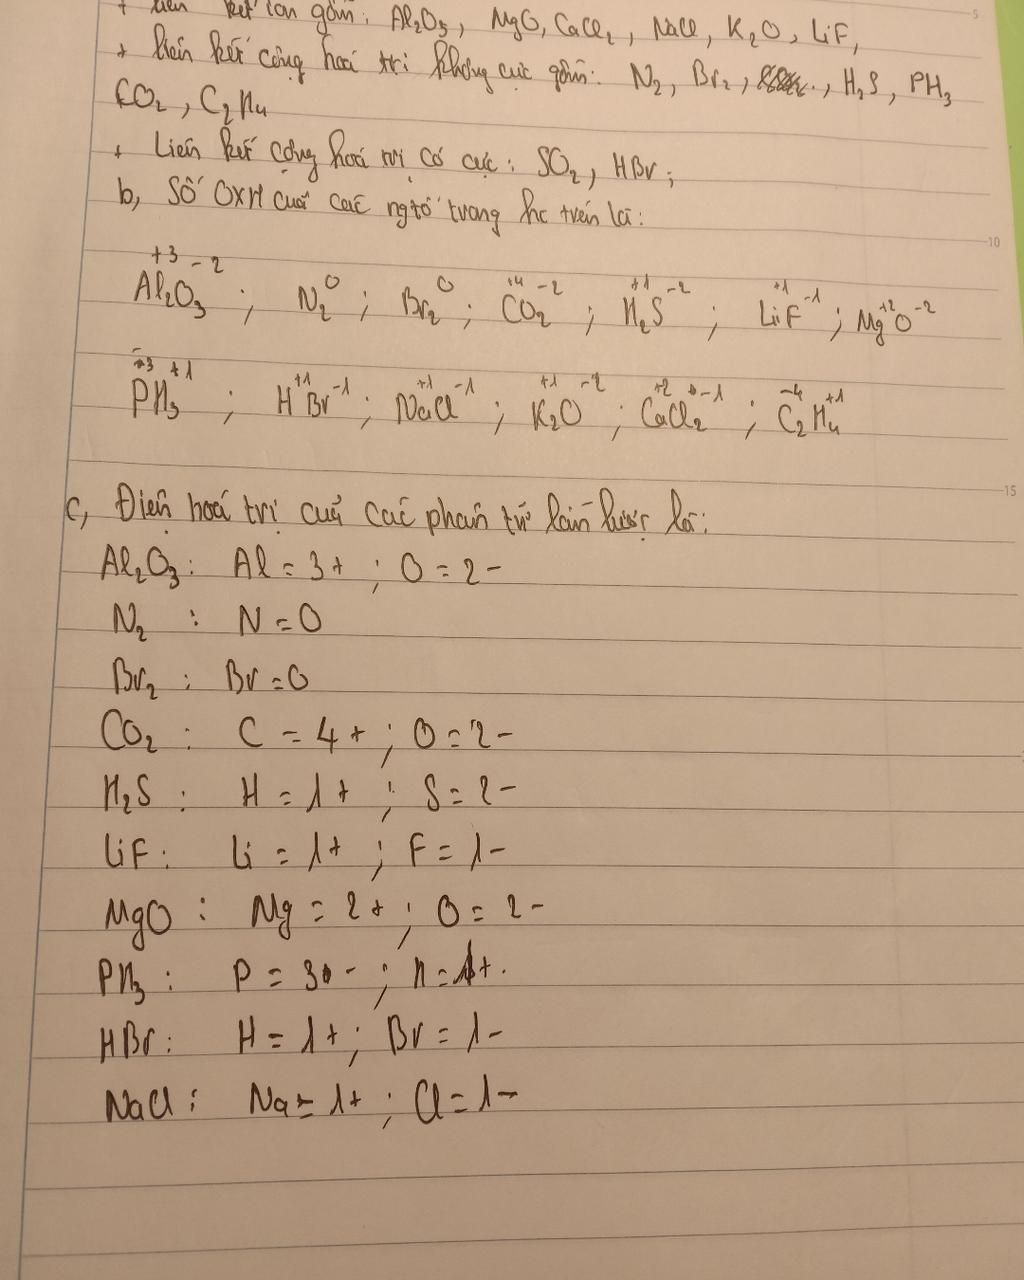 + liên kết ion gồm: Al₂O₃, MgO, CaCl₂, NaCl, K₂O, LiF,
+ liên kết cộng hoá trị không cực gồm: N₂, Br₂, , H₂S, PH₃
CO₂, C₂H₄
+ Liên kết cộng hoá trị có cực: SO₂, HBr;
b, Số OXH của các ngtố trong hc trên là:
+3 -2 Al₂O₃ ; N₂ 0 ; Br₂ 0 ; +4 -2 CO₂ ; +1 -2 H₂S ; +1 -1 LiF ; Mg +2 O -2
-3 +1 PH₃ ; H +1 Br -1 ; +1 -1 NaCl ; +1 -2 K₂O ; +2 -1 CaCl₂ ; -4 +1 C₂H₄
c, Điện hoá trị của các phân tử lần lượt là:
Al₂O₃: Al = 3+ ; O = 2-
N₂ : N = O
Br₂ : Br = O
CO₂ : C = 4+ ; O = 2-
H₂S : H = 1+ ; S = 2-
LiF : Li = 1+ ; F = 1-
MgO : Mg = 2+ ; O = 2-
PH₃ : P = 3- ; H = 1+.
HBr : H = 1+ ; Br = 1-
NaCl : Na = 1+ ; Cl = 1-
5
10
15